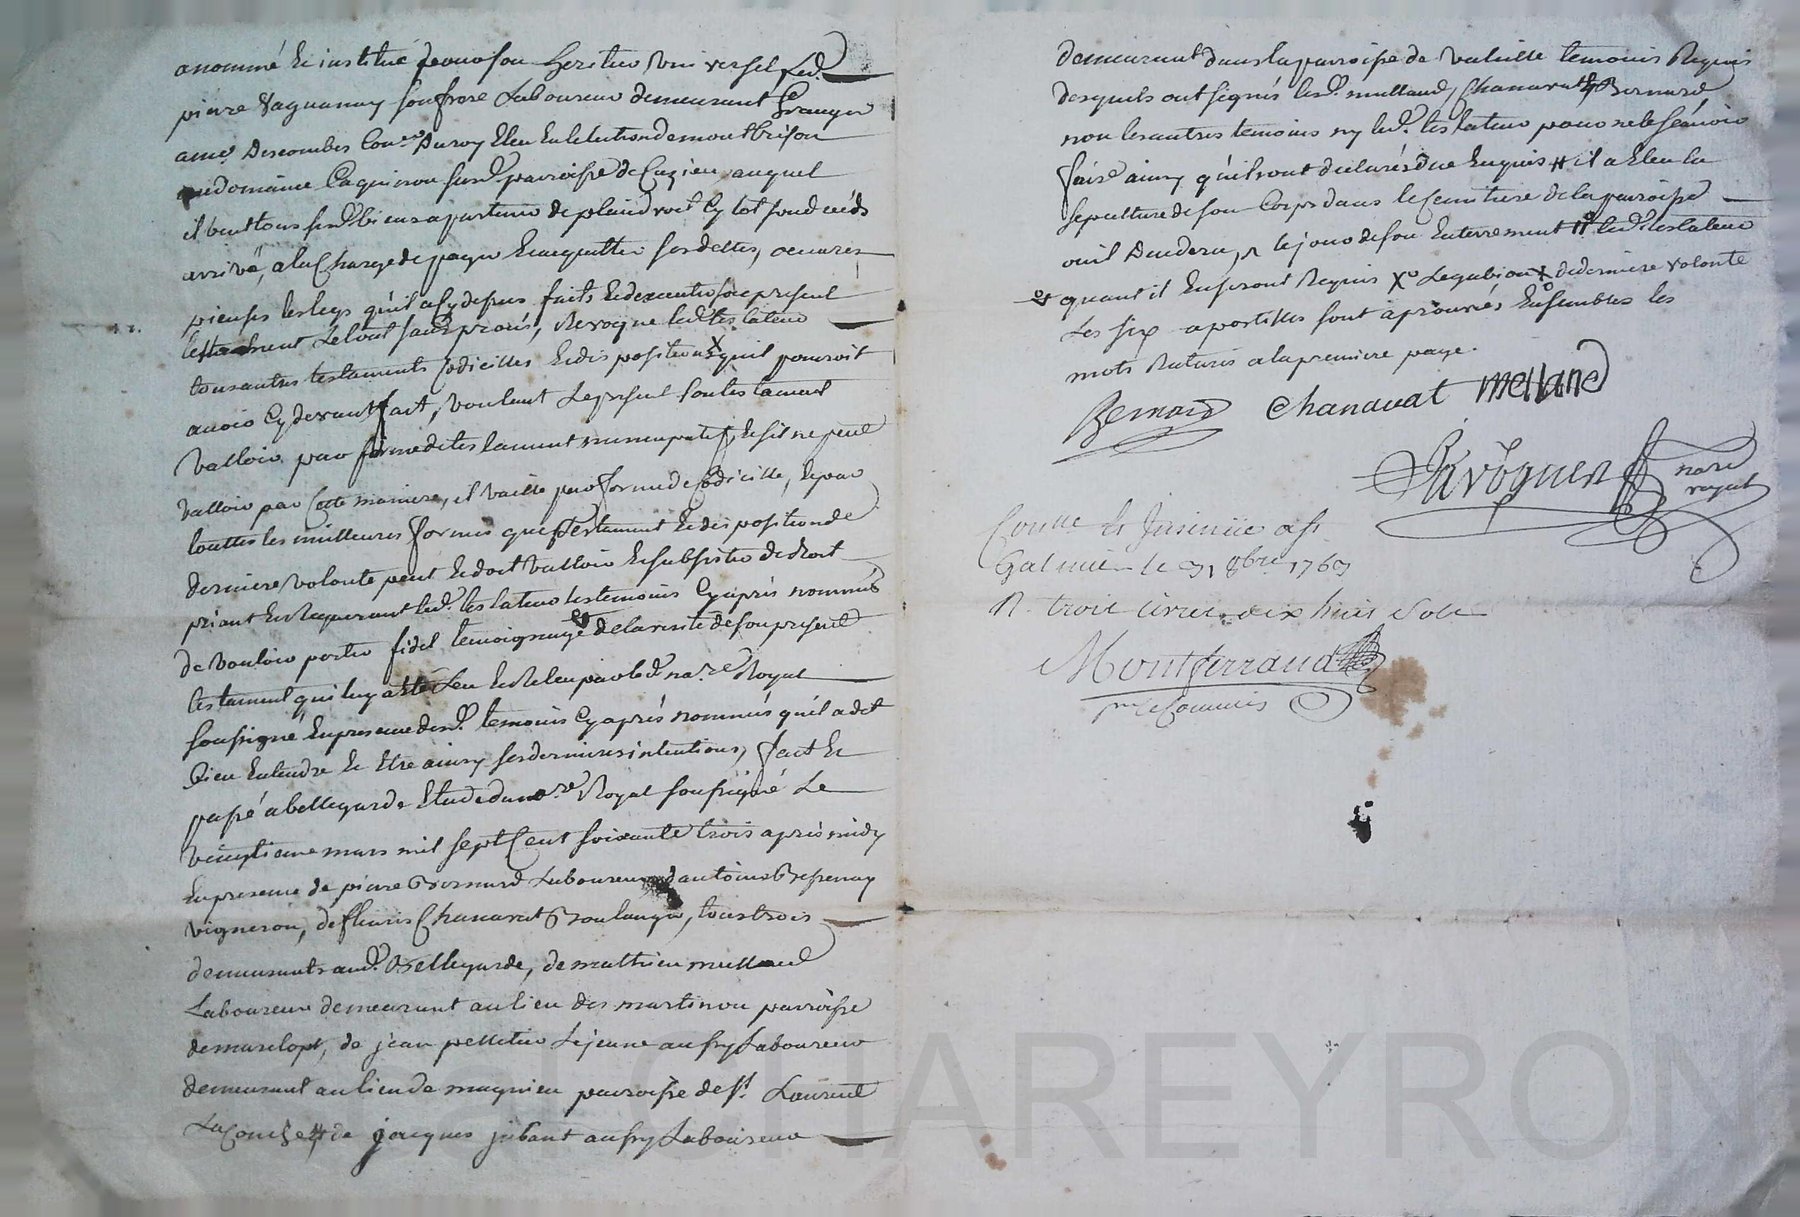 a nommé et institué pour son heritier universel led.
piere Vaganay son frere Laboureur demeurant
Grangier
Descombes Con.er Du roy Eleu En lelection de montbrison
au domaine paroisse de Cuzieu auquel
il veut tous sesd. biens apartenir de plain droit Cy tot son deceds
arrivé, a la Charge de payer Et acquitter ses dettes, oeuvres
pieuses les legs qu'il a Cy depus faits Et dexecuter son present
testament Le tout sans proces, Revoque led. testateur
tous autres testaments Codicilles Et dispositions X quil pouroit
avoir Cy devant fait, voulant Le present son testament
valloir par forme de testament nuncupatif, Et sil ne peut
valloir par Cette maniere, il vaille par forme de Codicille, Et par
touttes les meilleures formes que testament Et disposition de
derniere volonté peut Et doit valloir Et subsister de droit
priant Et Requerant led. testateur les temoins Cy après nommés
de vouloir porter fidel temoignage de la verité de son present
testament qui luy a été Leu Et Releu par led. no.re Royal
soussigné En presence desd. temoins Cy après nommés qu'il a dit
bien Entendre Et Etre ainsy ses dernieres intentions, fait Et
passé a bellegarde Etude du no.re Royal soussigné Le
mars mil sept Cent soixante trois après midy
En presence de piere Bernard Laboureur d'antoine
vigneron, de fleuris Chanavat Boulanger, tous trois
demeurants aud. Bellegarde, de mathieu melland
Laboureur demeurant au lieu des martinou paroisse
de marclopt, de jean pettitier Le jeune aussy Laboureur
demeurant au lieu de magnieu paroisse de st. Laurent
La Conche # de jacques jubant aussy Laboureur
demeurant dans la paroisse de Valeille temoins Requis
desquels ont signés lesd. melland, Chanavat & Bernard
non les autres temoins ny led. testateur pour ne le sçavoir
faire ainsy qu'ils ont declarés de ce Enquis # il a Eleu la
sepulture de son Corps dans le Cemitiere de la paroisse
ou il Decedera, le jour de son Enterrement # led. testateur
quant il En seront Requis X Legabious X de derniere volonté
Les six apostilles sont aprouvés Ensembles les
mots Raturés a la premiere page.
Bernard Chanavat melland
nore
royal
Con.lle et Insinüé a St.
Galmier le 31 8bre 1763
R. trois livres dix huit Sols
Montferrand
pr le Commis
CHAREYRON